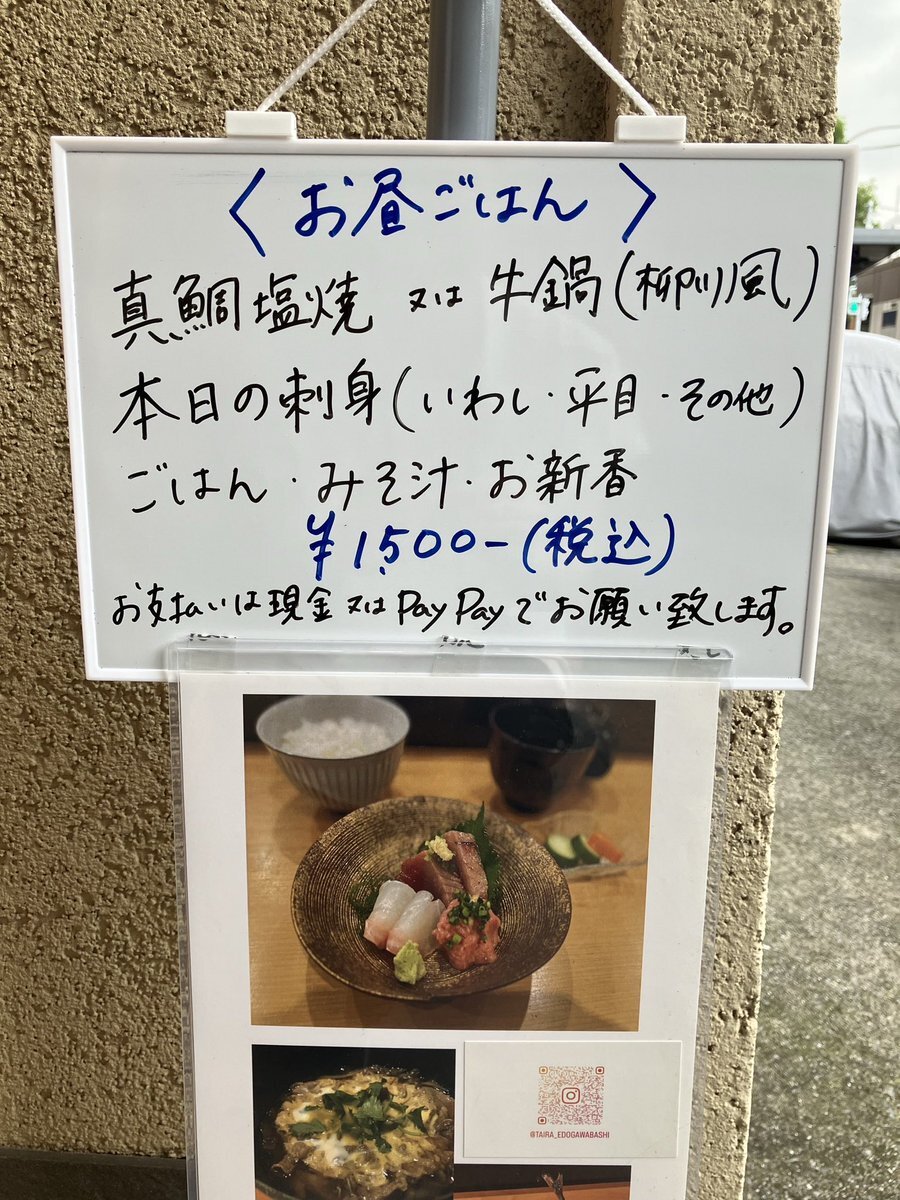 〈お昼ごはん〉
真鯛塩焼 又は 牛鍋(柳川風)
本日の刺身(いわし・平目・その他)
ごはん・みそ汁・お新香
¥1,500-(税込)
お支払いは現金又はPayPayでお願い致します。
@TAIRA_EDOGAWABASHI